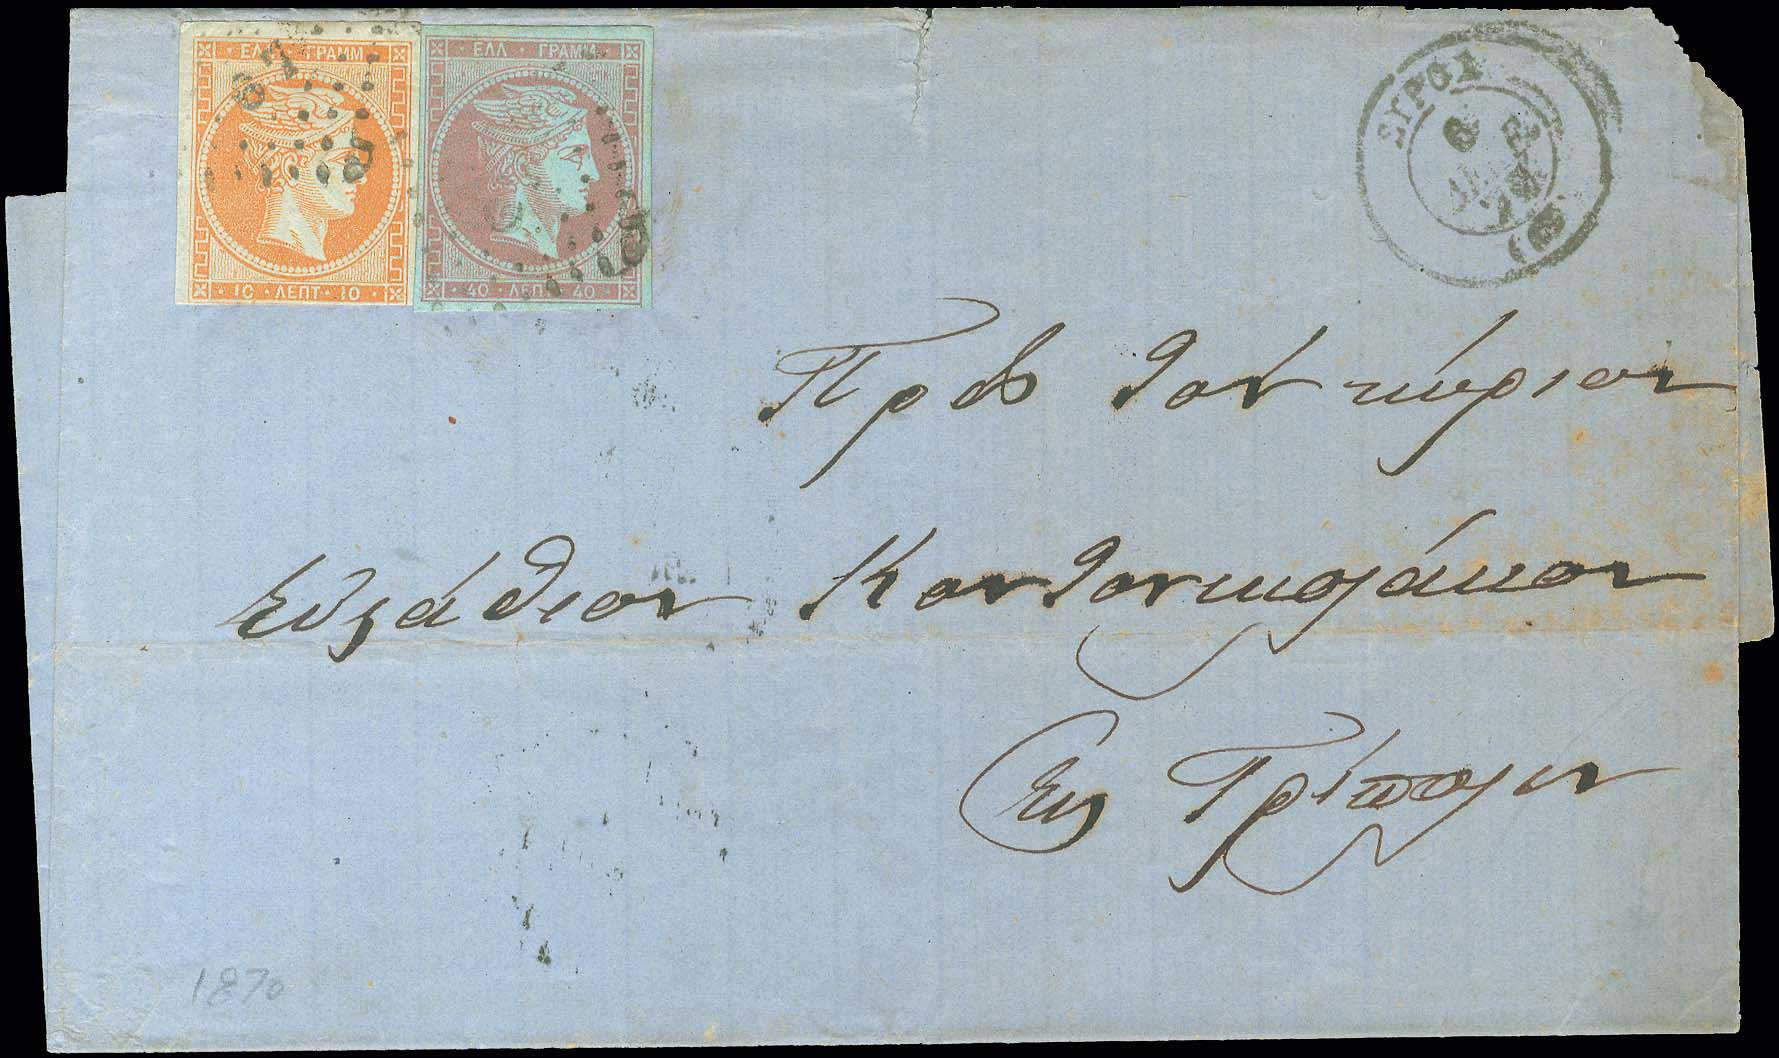 ΕΛΛ ΓΡΑΜΜ
10 ΛΕΠΤ 10
ΕΛΛ ΓΡΑΜΜ
40 ΛΕΠ 40
67
ΣΥΡΟΣ
6
(68)
Πρὸς τὸν κύριον
Εὐστάθιον
Εἰς Τρίπολιν
1870